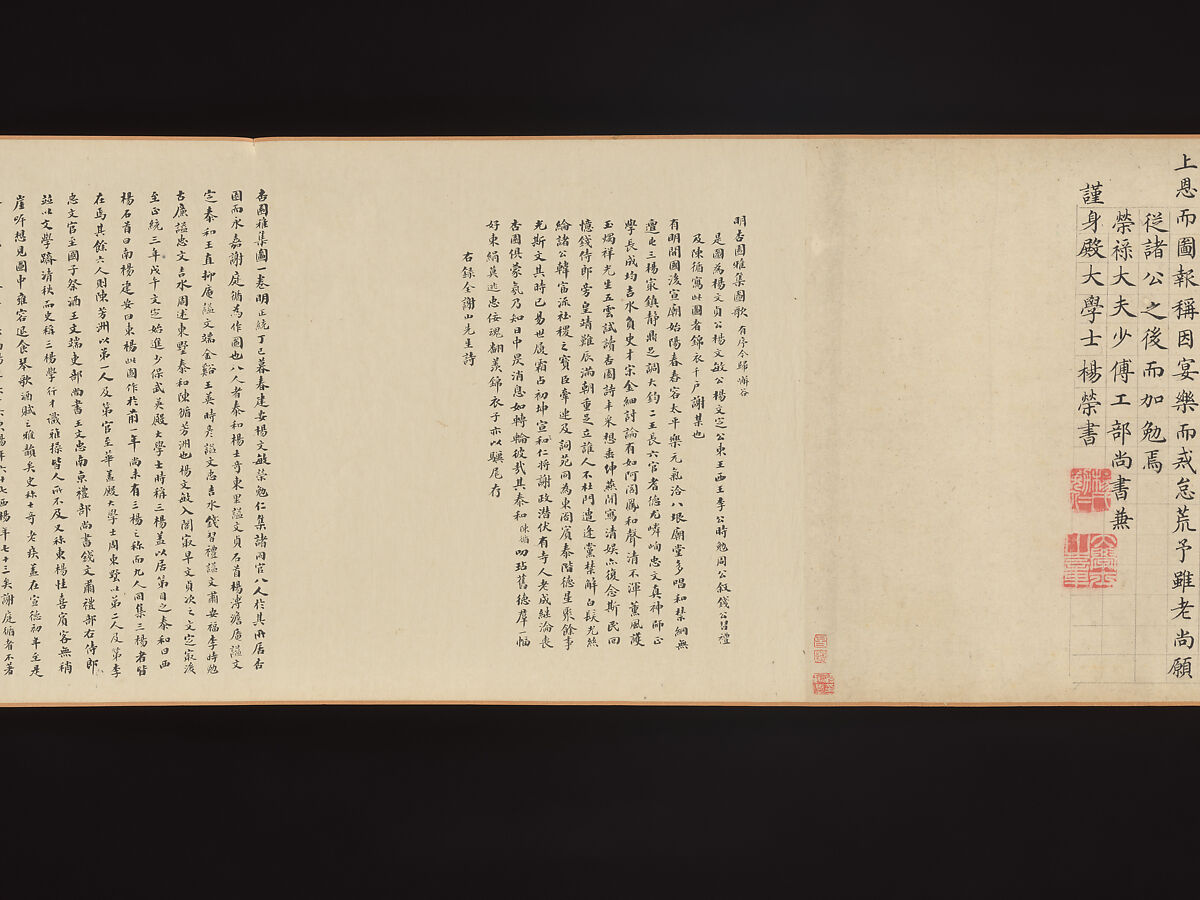 上恩而圖報稱因宴樂而戒怠荒予雖老尚願
從諸公之後而加勉焉
榮祿大夫少傅工部尚書兼
謹身殿大學士楊榮書
明杏園雅集圖歌 有序今歸懈谷
是圖為楊文貞公楊文敏公楊文定公東王西王李公時勉周公敘錢公習禮
及陳循寫此圖者錦衣千戶謝某也
有明開國浚宣廟始陽春春容太平樂元氣洽八垠廟堂多唱和禁網無
學長成均吉水負史才宗金細討論有如阿閣鳳和聲清不渾薰風護
玉燭祥光生五雲試讀杏園詩丰采想垂紳燕閒寫清娛亦復念斯民回
憶錢侍郎勞皇靖難辰滿朝重足立誰人不杜門遣逢黨禁解白髮尤絲
綸諸公韓富流社稷之寶臣牽連及詞苑同為東閣賓泰階德星聚餘事
尤斯文其時已易世履霜占初坤宣和仁將謝政潛伏有寺人老成繼淪喪
杏園俱蒙氣乃知日中昃消息如轉輪彼哉其泰和陳循叨玷舊德羣一幅
好東絹莫逃忠佞魂翻羨錦衣子亦以驥尾存
右錄全謝山先生詩
杏園雅集圖一卷明正統丁巳暮春建安楊文敏榮勉仁集諸同官八人於其所居杏
園而永嘉謝庭循為作圖也八人者泰和楊士奇東里諡文貞石首楊溥澹庵諡文
定泰和王直抑庵諡文端金谿王英時彥諡文忠吉水錢習禮諡文肅安福李時勉
古廉諡忠文吉水周述東墅泰和陳循芳洲也楊文敏入閣最早文貞次之文定最後
至正統三年戊午文定始進少保武英殿大學士時稱三楊蓋以居第目之泰和曰西
楊石首曰南楊建安曰東楊此圖作於前一年尚未有三楊之稱而九人同集三楊者皆
在焉其餘六人則陳芳洲以第一人及第官至華蓋殿大學士周東墅以第二人及第李
忠文官至國子祭酒王文端吏部尚書王文忠南京禮部尚書錢文肅禮部右侍郎
並以文學躋清秩而史稱三楊學行才識雅操皆人所不及又稱東楊性喜賓客無稍
崖岸想見圖中雍容退食琴歌酒賦之雅韻矣史稱士奇老疾蓋在宣德初年至是